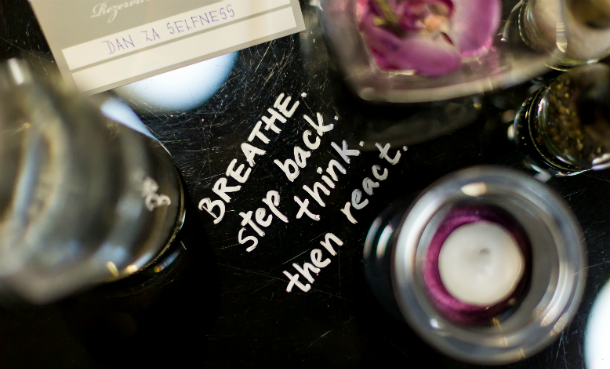 DAN ZA SELFNESS
BREATHE.
step back.
think.
then react.